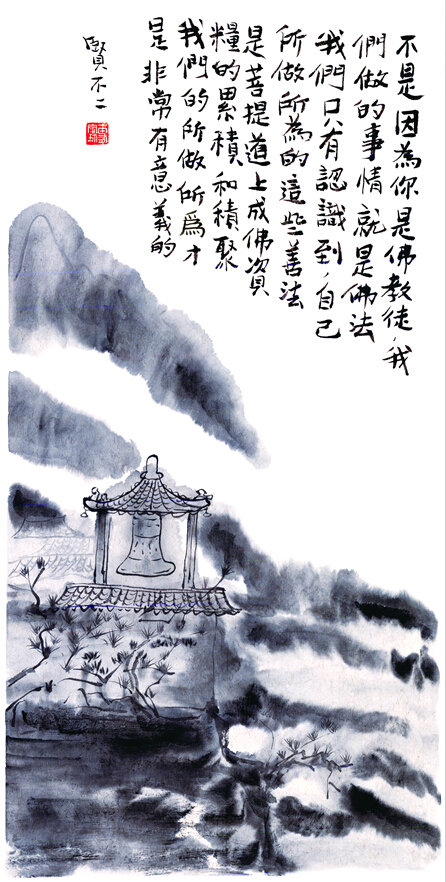 不是因為你是佛教徒，我
們做的事情就是佛法
我們只有認識到，自己
所做所為的這些善法
是菩提道上成佛資
糧的累積和積聚
我們的所做所為才
是非常有意義的
賢不二